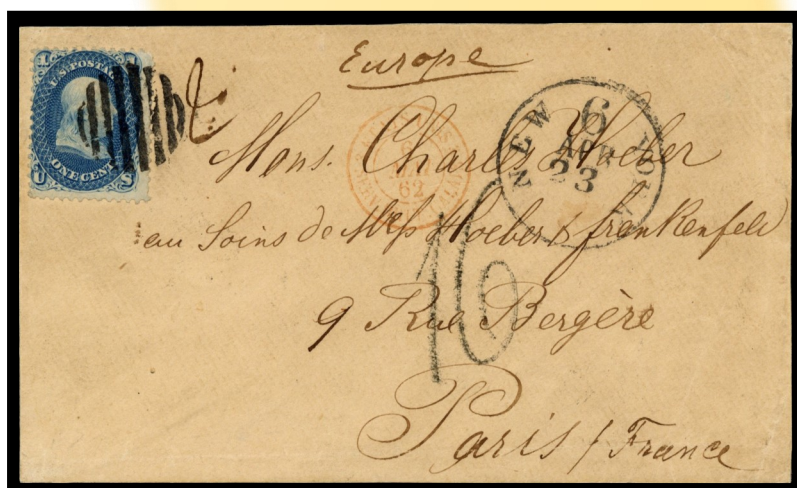 Europe
U.S. POSTAGE
ONE CENT
U S
NEW YORK
6
APR
23
62
Mons. Charles Hoeber
au Soins de Mess Hoeber & frankenfeld
16
9 Rue Bergère
Paris / France